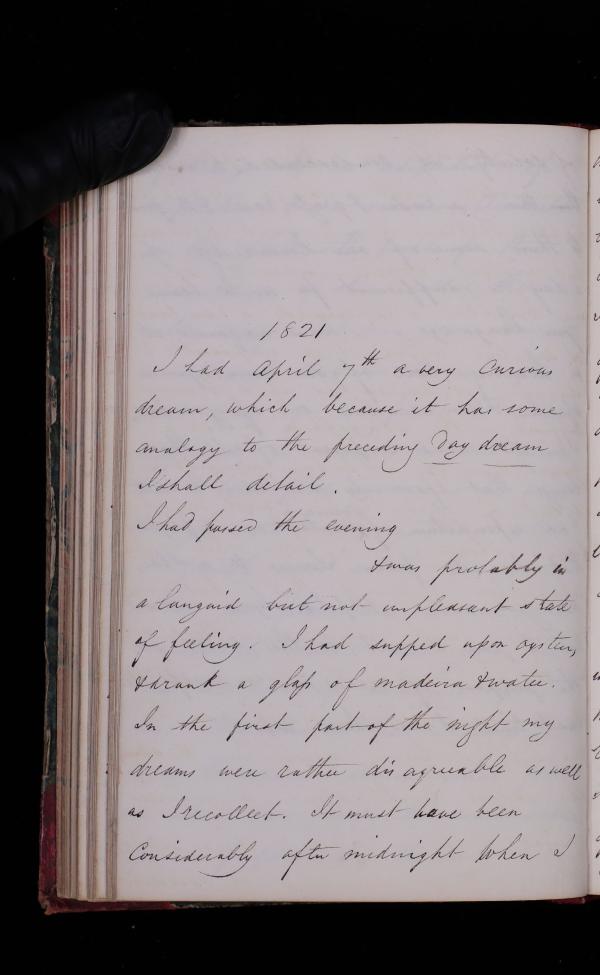 1821
I had April 7th a very curious
dream, which because it has some
analogy to the preceding Day dream
I shall detail.
I had passed the evening
& was probably in
a languid but not unpleasant state
of feeling. I had supped upon oysters,
& drank a glass of madeira & water.
In the first part of the night my
dreams were rather disagreeable as well
as I recollect. It must have been
considerably after midnight when I